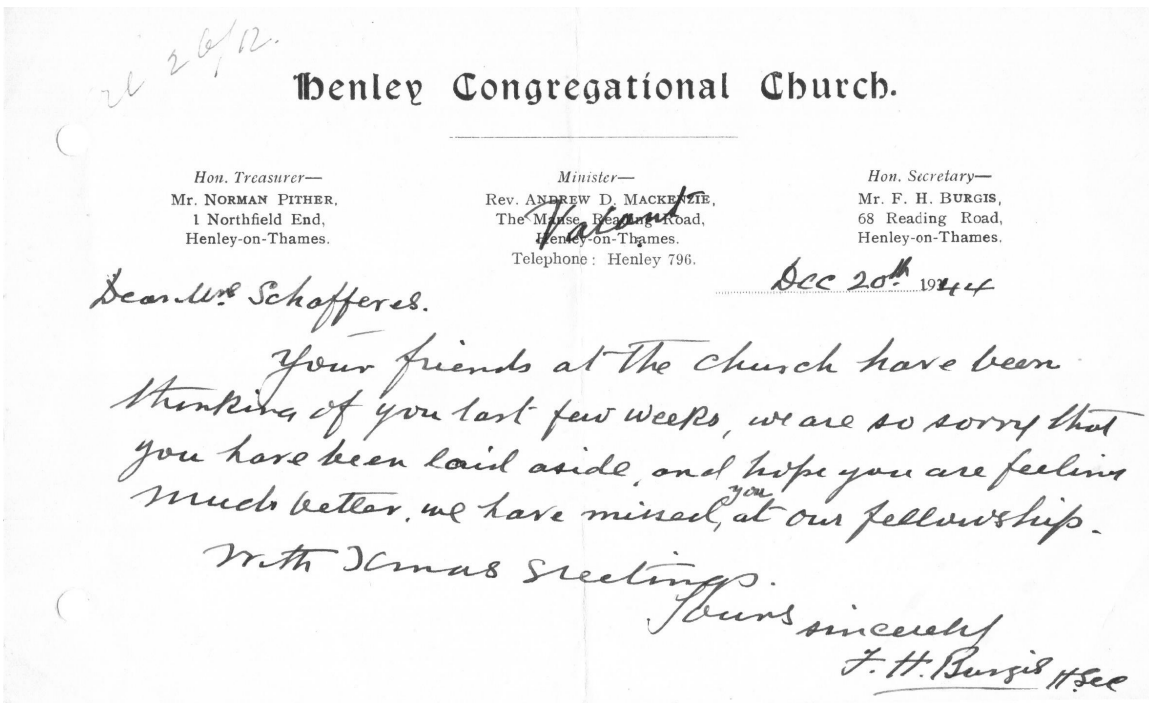 26/12.
Henley Congregational Church.
Hon. Treasurer—
Mr. Norman Pither,
1 Northfield End,
Henley-on-Thames.
Minister—
Rev. Andrew D. Mackenzie,
The Manse, Reading Road,
Henley-on-Thames.
Telephone: Henley 796.
Vacant
Hon. Secretary—
Mr. F. H. Burgis,
68 Reading Road,
Henley-on-Thames.
Dec 20th 1944
Dear Mrs Schafferes.
Your friends at the church have been
thinking of you last few weeks, we are so sorry that
you have been laid aside, and hope you are feeling
much better. we have missed you at our fellowship.
With Xmas Greetings.
Yours sincerely
F. H. Burgis H. Sec